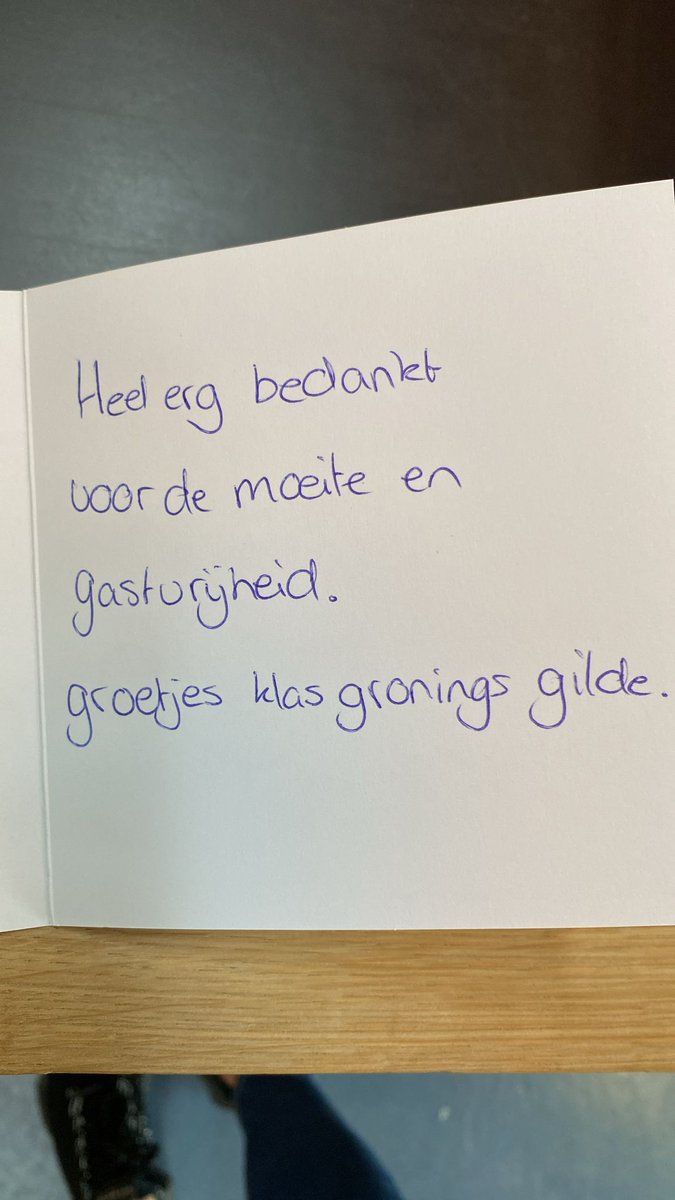 Heel erg bedankt
voor de moeite en
gastvrijheid.
groetjes klas gronings gilde.